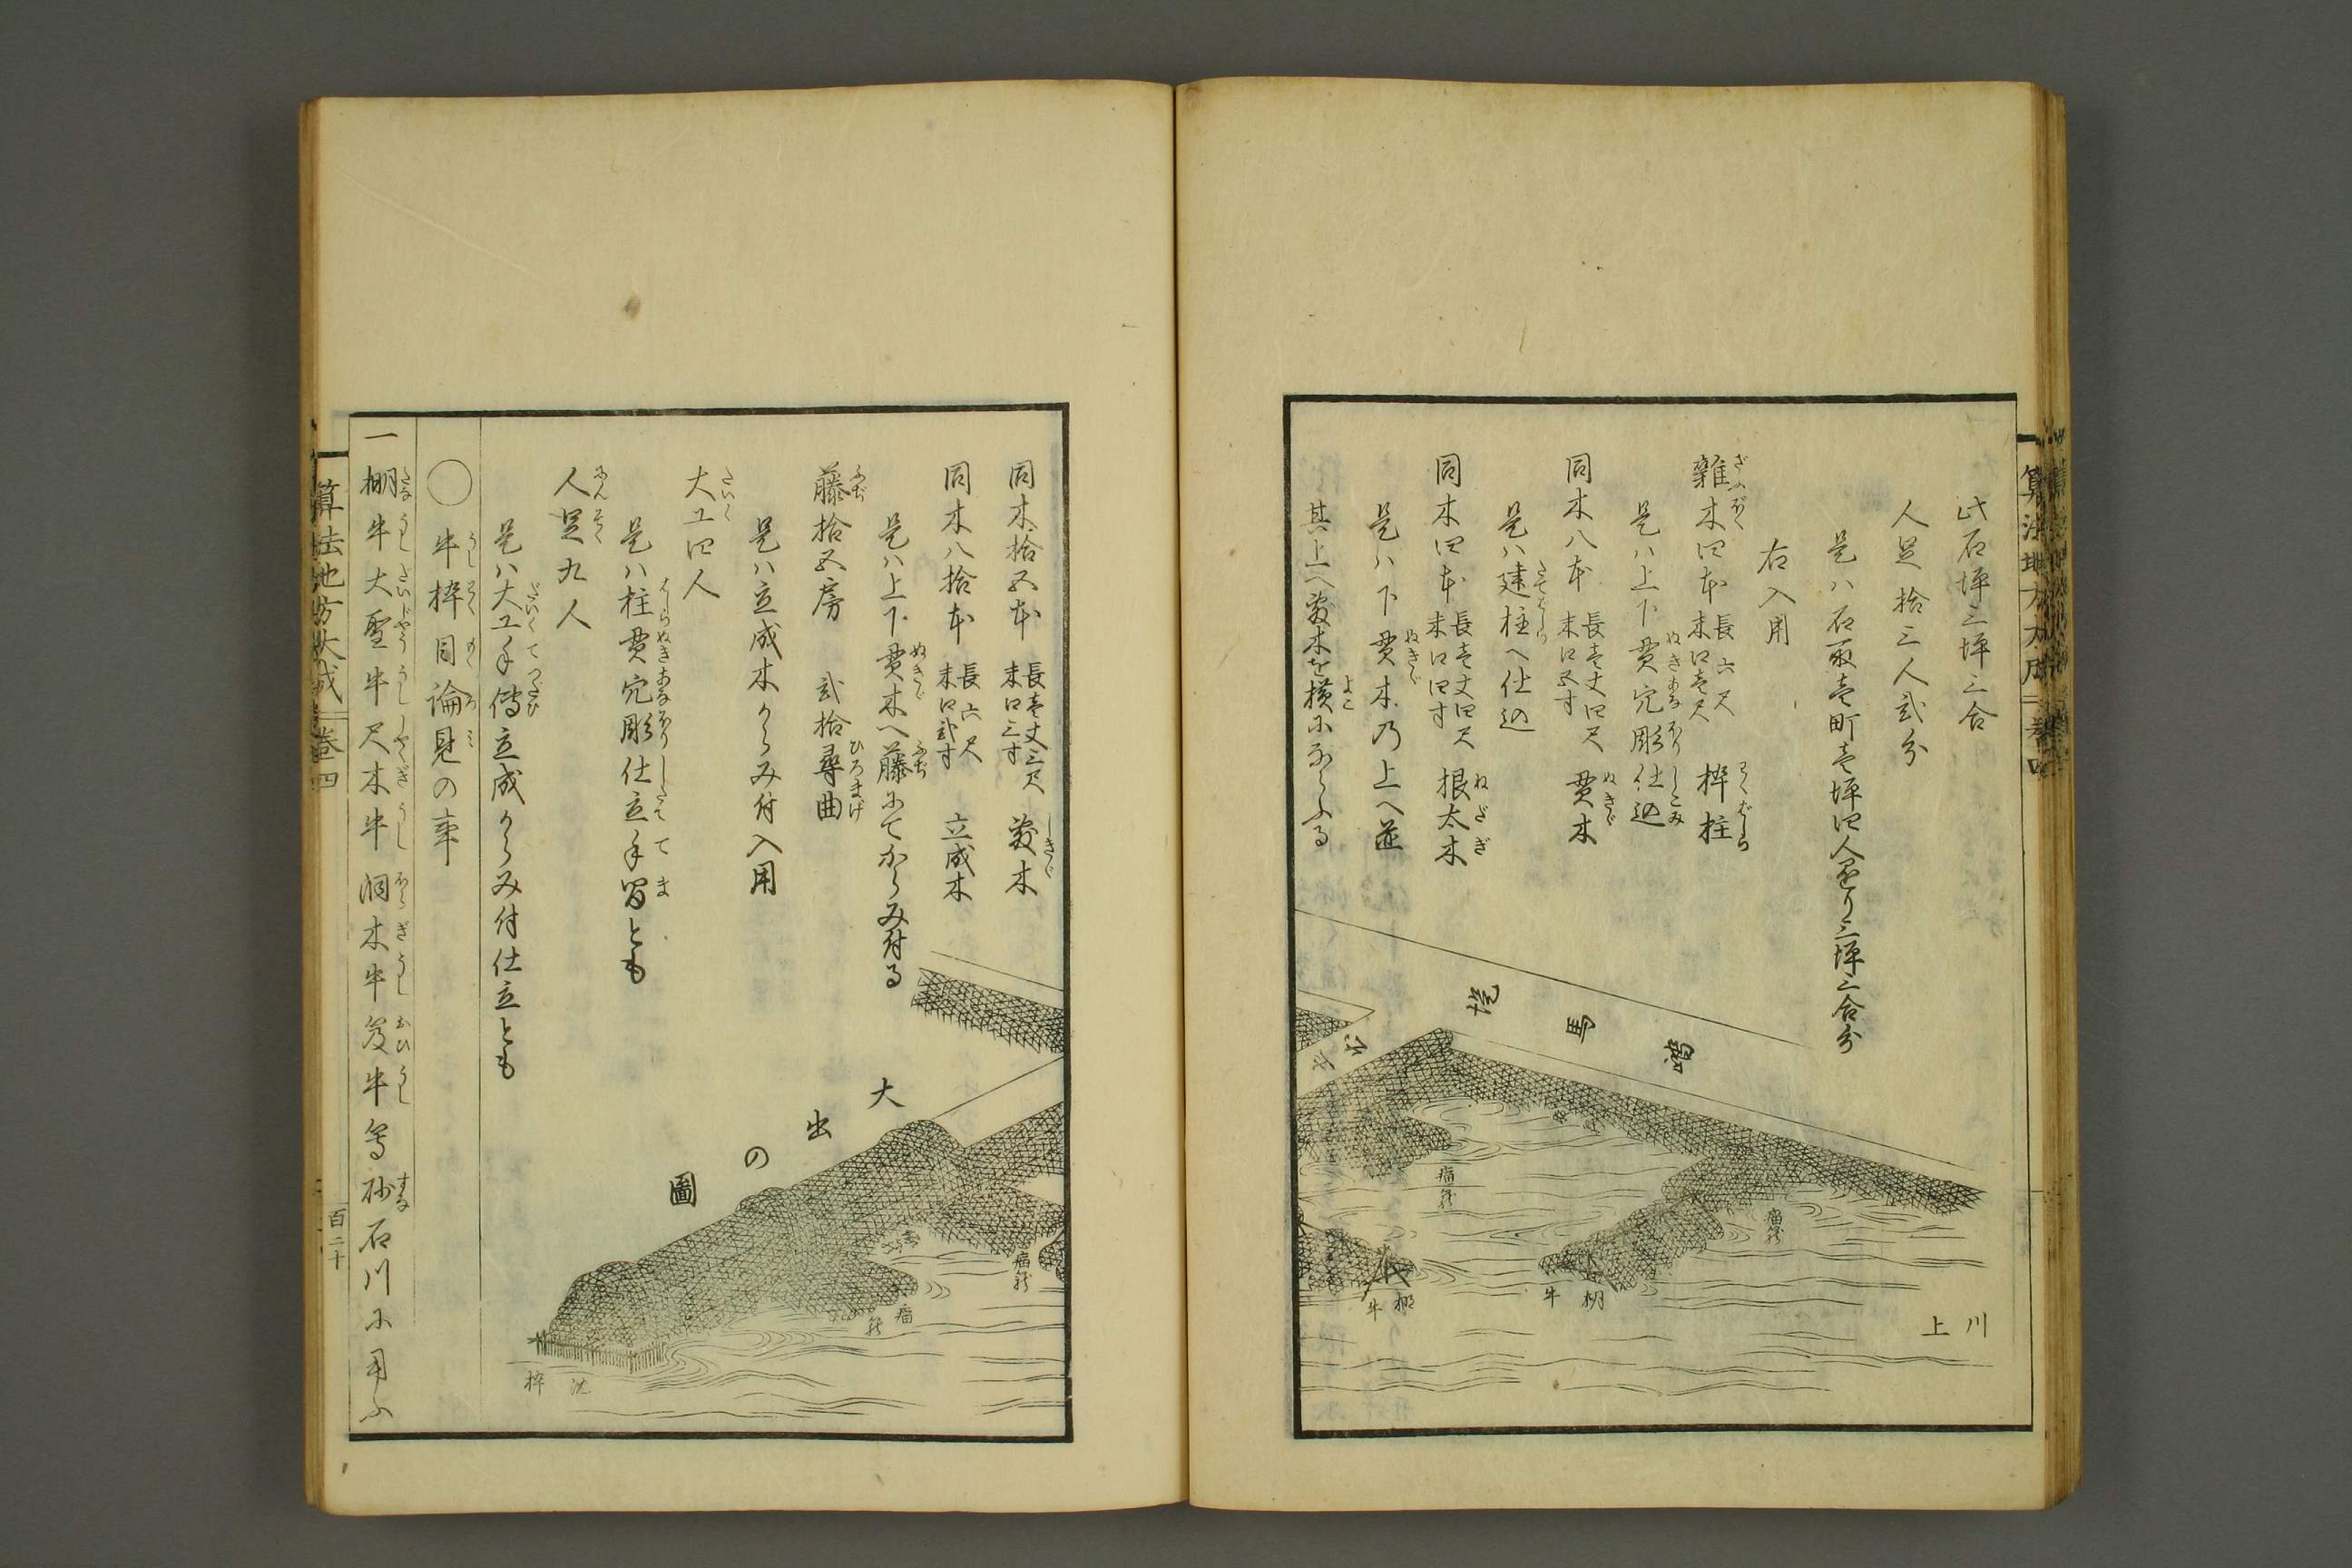 此石坪三坪三合
人足拾三人弐分
是ハ石取壱町壱坪四人掛り三坪三合分
右入用
雑木四本 長六尺 末口壱尺 枠柱
是ハ上下貫穴彫仕込
同木八本 長壱丈四尺 末口五寸 貫木
是ハ建柱へ仕込
同木四本 長壱丈四尺 末口四寸 根太木
是ハ下貫木乃上へ並
其上へ敷木を横にならふる
馬
瘤篭
瘤篭
棚牛
棚牛
川上
算法地方大成 巻四
同木拾五本 長壱丈三尺 末口三寸 敷木
同木八拾本 長六尺 末口弐寸 立成木
是ハ上下貫木へ藤にてからみ付る
藤拾五房 弐拾尋曲
是ハ立成木からみ付入用
大工四人
是ハ柱貫穴彫仕立手間とも
人足九人
是ハ大工手傳立成からみ付仕立とも
大出の圖
瘤篭
瘤篭
沈枠
○牛枠目論見の事
一棚牛大聖牛尺木牛洞木牛笈牛等砂石川に用ふ
算法地方大成 巻四
百二十